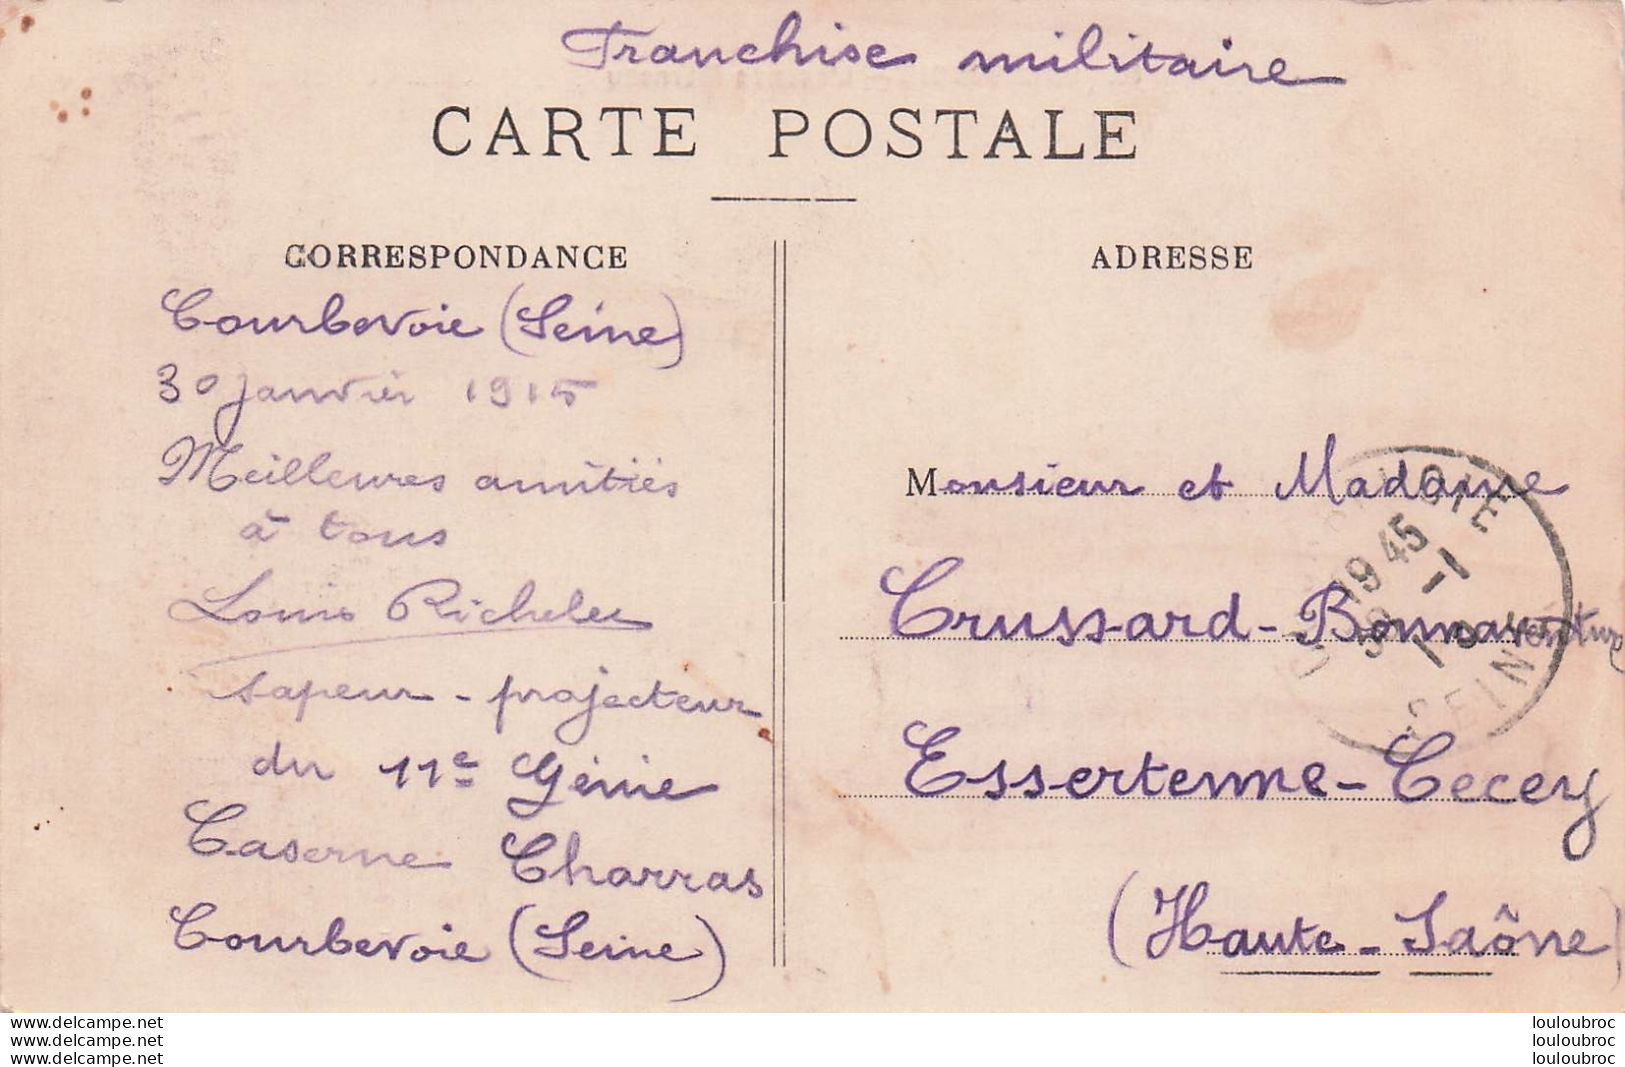 Franchise militaire
CARTE POSTALE
CORRESPONDANCE
Courbevoie (Seine)
30 janvier 1915
Meilleures amitiés
à tous
Louis
sapeur-projecteur
du 11e Génie
Caserne Charras
Courbevoie (Seine)
ADRESSE
Monsieur et Madame
Crussard-Bonnaventure
Essertenne-Cecey
(Haute-Saône)
19 45
www.delcampe.net
www.delcampe.net
www.delcampe.net
louloubroc
louloubroc
louloubroc